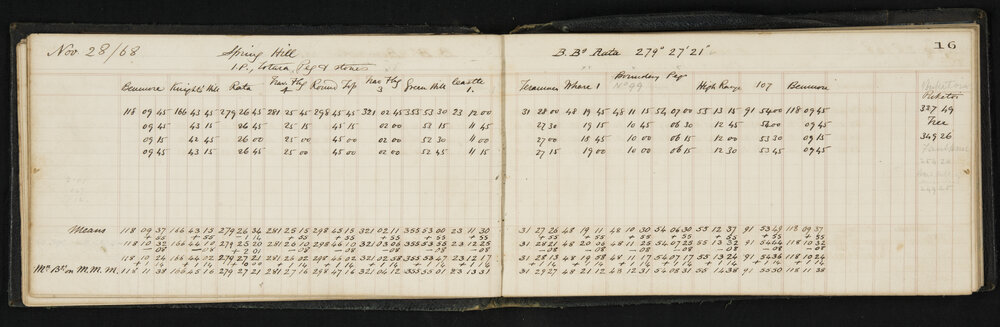 Nov. 28/68 Spring Hill B. Bº Rata 279° 27' 21" 16
Benmore Knight's Hill Rata Trav. Fly 4 Round Top Trav Fly 3 Green Hill Castle 1. Whare 1 Boundary Peg Nº 99 High Range 107 Benmore
118 09 45 166 43 45 279 26 45 281 25 45 298 45 45 321 02 45 355 53 30 23 12 00 31 28 00 48 19 45 48 11 15 54 07 00 55 13 15 91 54 00 118 09 45 327 49
09 45 43 15 26 45 25 15 45 15 02 00 53 15 11 45 27 30 19 15 10 45 06 30 12 45 54 00 09 45 Tree
09 45 42 45 26 00 25 00 45 00 02 00 52 30 11 00 27 00 18 45 10 00 06 00 12 30 53 45 09 45 349 26
09 45 43 15 26 45 25 00 45 00 02 00 52 45 11 15 27 15 19 00 10 00 06 15 12 30 53 45 09 45
Means 118 09 37 166 43 15 279 26 34 281 25 15 298 45 15 321 02 11 355 53 00 23 11 30 31 27 26 48 19 11 48 10 30 54 06 30 55 12 37 91 53 49 118 09 37
+ 55 + 55 - 1 14 + 55 + 55 + 55 + 55 + 55 + 55 + 55 + 55 + 55 + 55 + 55 + 55
118 10 32 166 44 10 279 25 20 281 26 10 298 46 10 321 03 06 23 12 25 31 28 21 48 20 06 48 11 25 54 07 25 55 13 32 91 54 44 118 10 32
- 08 - 08 + 2 01 - 08 - 08 - 08 - 08 - 08 - 08 - 08 - 08 - 08 - 08 - 08 - 08
118 10 24 166 44 02 279 27 21 281 26 02 298 46 02 321 02 58 355 53 47 23 12 17 31 28 13 48 19 58 48 11 17 54 07 17 55 13 24 91 54 36 118 10 24
+ 1 14 + 1 14 + 0 00 + 1 14 + 1 14 + 1 14 + 1 14 + 1 14 + 1 14 + 1 14 + 1 14 + 1 14 + 1 14 + 1 14 + 1 14
M. M. M. 118 11 38 166 45 16 279 27 21 281 27 16 298 47 16 321 04 12 355 55 01 23 13 31 31 29 27 48 21 12 48 12 31 54 08 31 55 14 38 91 55 50 118 11 38